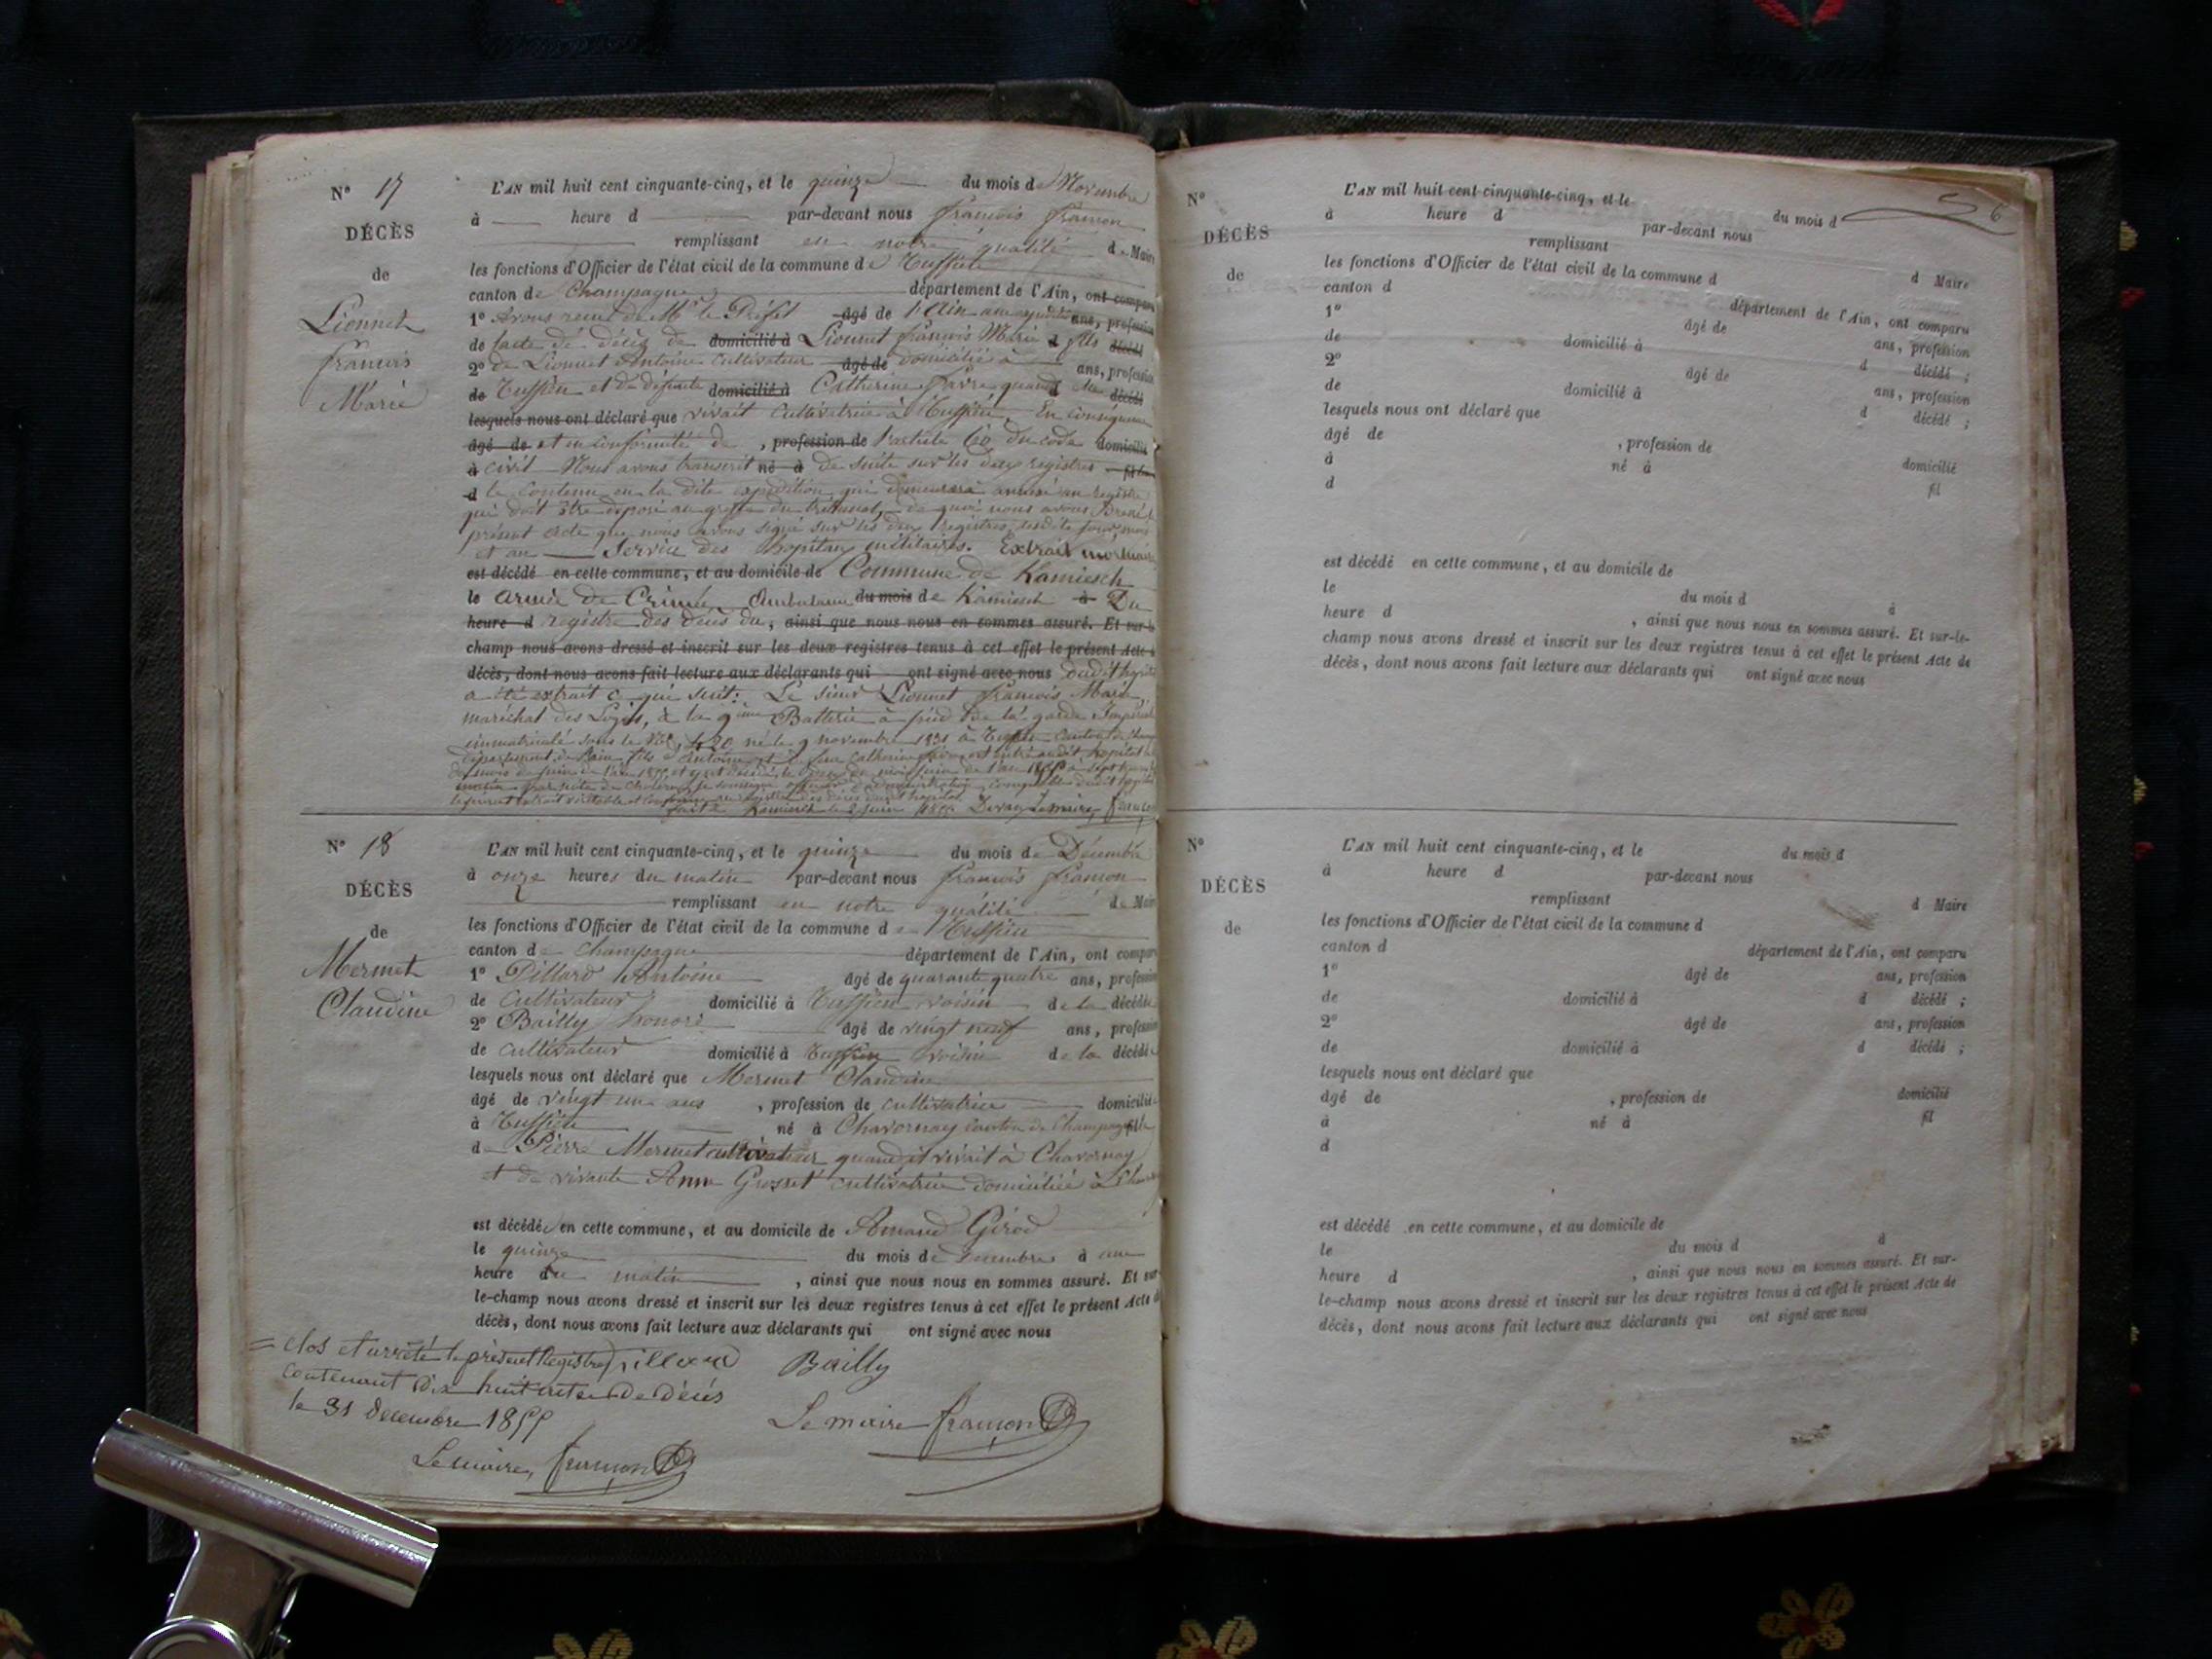 N° 17
DÉCÈS
de
Lionnet
françois
Marie
L'AN mil huit cent cinquante-cinq, et le quinze du mois de Novembre
à heure d par-devant nous françois framon
remplissant en notre qualité de Maire
les fonctions d'Officier de l'état civil de la commune de Ruffieu
canton de Champagne département de l'Ain, ont comparu
1° Avons reçu de Mr le Préfet âgé de l'Ain une expédition ans, profession
de l'acte de décès de domicilié à Lionnet françois Marie d fils décédé
2° de Lionnet Antoine cultivateur âgé de domicilié à ans, profession
de Ruffieu et de défunte domicilié à Catherine favre quand elle décédé
lesquels nous ont déclaré que vivait cultivatrice à Ruffieu. En conséquence
âgé de et en conformité de , profession de l'article 60 du code domicilié
à civil Nous avons transcrit né à de suite sur les deux registres fil
d le contenu en la dite expédition qui demeurera annexé au registre
qui doit être déposé au greffe du tribunal, de quoi nous avons
présent acte que nous avons signé sur les deux registres, jour, mois
et an Service des hopitaux militaires. Extrait mortuaire
est décédé en cette commune, et au domicile de Commune de Kamiesch
le armée de Crimée Ambulance du mois de Kamiesch à Du
heure d registre des décès du, ainsi que nous nous en sommes assuré. Et sur-le-
champ nous avons dressé et inscrit sur les deux registres tenus à cet effet le présent Acte de
décès, dont nous avons fait lecture aux déclarants qui ont signé avec nous dudit hopital
a été extrait ce qui suit: Le sieur Lionnet françois Marie
maréchal des Logis, à la 9ème Batterie à pied de la garde Impériale
immatriculé sous le N° 420 né le 9 novembre 1831 à Ruffieu canton de
département de l'ain, fils d'antoine et de feu Catherine favre est entré audit hopital le
du mois de juin de l'an 1855, et y est décédé le du mois juin de l'an 1855 à sept heures
matin par suite de Choléra, je soussigné officier d'administration comptable dudit hopital
le présent extrait véritable et conforme au registre des décès dudit hopital
fait à Kamiesch le 2 juin 1855 Le maire, framon
N° 18
DÉCÈS
de
Mermet
Claudine
L'AN mil huit cent cinquante-cinq, et le quinze du mois de Décembre
à onze heures du matin par-devant nous françois framon
remplissant en notre qualité de Maire
les fonctions d'Officier de l'état civil de la commune de Ruffieu
canton de Champagne département de l'Ain, ont comparu
1° Pillard Antoine âgé de quarante quatre ans, profession
de Cultivateur domicilié à Ruffieu voisin de la décédée
2° Bailly honoré âgé de vingt neuf ans, profession
de cultivateur domicilié à Ruffieu voisin de la décédée
lesquels nous ont déclaré que Mermet Claudine
âgé de vingt un ans , profession de cultivatrice domiciliée
à Ruffieu né à Chavornay canton de Champagne fille
de Pierre Mermet cultivateur quand il vivait à Chavornay
et de vivante Anne Grosset cultivatrice domiciliée à
est décédée en cette commune, et au domicile de Amand Girod
le quinze du mois de Décembre à une
heure du matin , ainsi que nous nous en sommes assuré. Et sur
le-champ nous avons dressé et inscrit sur les deux registres tenus à cet effet le présent Acte de
décès, dont nous avons fait lecture aux déclarants qui ont signé avec nous
= Clos et arrêté le présent Registre Pillard Bailly
contenant dix huit actes de décès
le 31 décembre 1855 Le maire framon
Le maire, framon
6
N°
DÉCÈS
de
L'AN mil huit cent cinquante-cinq, et le du mois d
à heure d par-devant nous
remplissant d Maire
les fonctions d'Officier de l'état civil de la commune d
canton d département de l'Ain, ont comparu
1° âgé de ans, profession
de domicilié à d décédé ;
2° âgé de ans, profession
de domicilié à d décédé ;
lesquels nous ont déclaré que
âgé de , profession de domicilié
à né à fil
d
est décédé en cette commune, et au domicile de
le du mois d à
heure d , ainsi que nous nous en sommes assuré. Et sur-le-
champ nous avons dressé et inscrit sur les deux registres tenus à cet effet le présent Acte de
décès, dont nous avons fait lecture aux déclarants qui ont signé avec nous
N°
DÉCÈS
de
L'AN mil huit cent cinquante-cinq, et le du mois d
à heure d par-devant nous
remplissant d Maire
les fonctions d'Officier de l'état civil de la commune d
canton d département de l'Ain, ont comparu
1° âgé de ans, profession
de domicilié à d décédé ;
2° âgé de ans, profession
de domicilié à d décédé ;
lesquels nous ont déclaré que
âgé de , profession de domicilié
à né à fil
d
est décédé en cette commune, et au domicile de
le du mois d à
heure d , ainsi que nous nous en sommes assuré. Et sur-
le-champ nous avons dressé et inscrit sur les deux registres tenus à cet effet le présent Acte de
décès, dont nous avons fait lecture aux déclarants qui ont signé avec nous